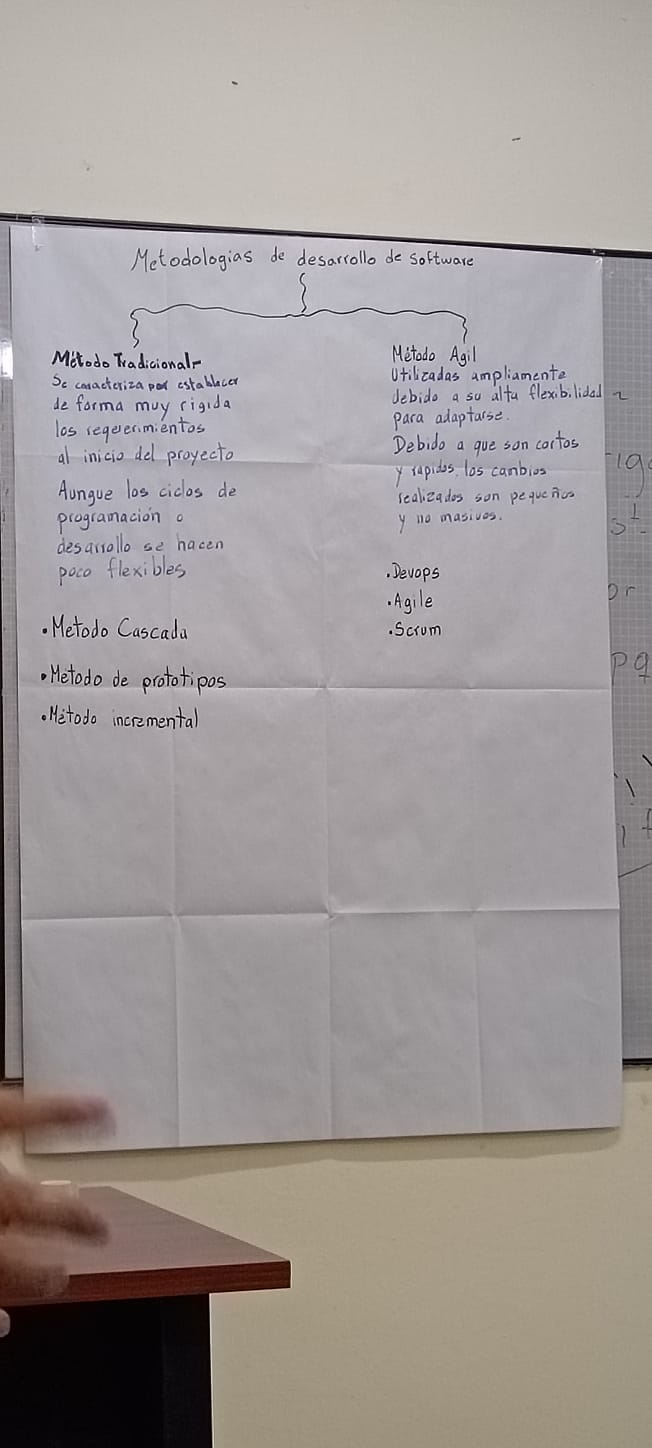 Metodologias de desarrollo de software
Método Tradicional-
Se caracteriza por establecer
de forma muy rigida
los requerimientos
al inicio del proyecto
Aunque los ciclos de
programación o
desarrollo se hacen
poco flexibles
• Metodo Cascada
• Metodo de prototipos
• Método incremental
Método Agil
Utilizadas ampliamente
debido a su alta flexibilidad
para adaptarse.
Debido a que son cortos
y rapidos, los cambios
realizados son pequeños
y no masivos.
. Devops
. Agile
. Scrum